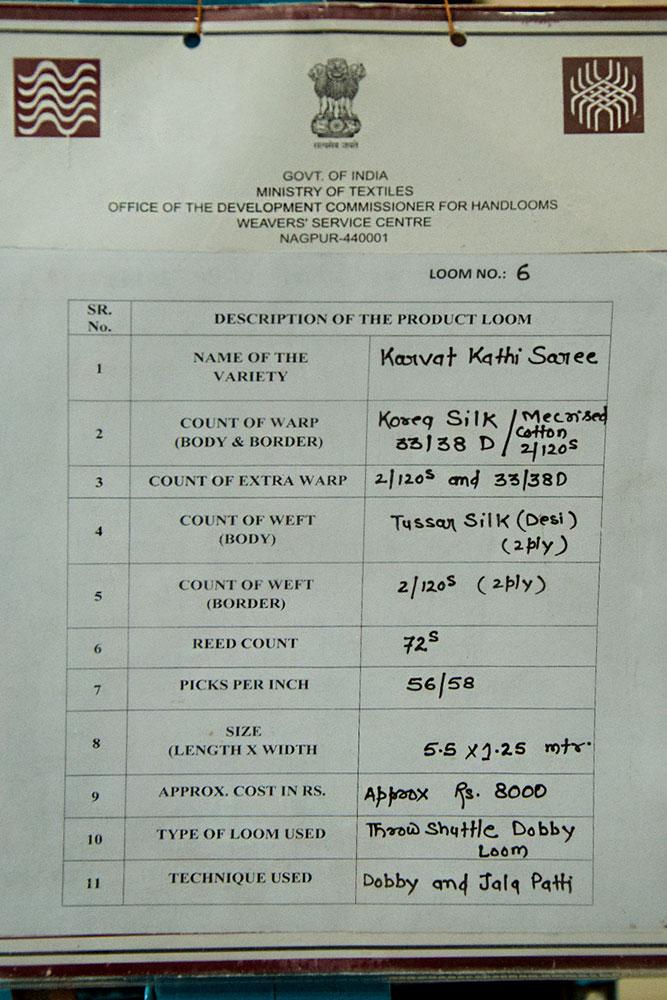 सत्यमेव जयते
GOVT. OF INDIA
MINISTRY OF TEXTILES
OFFICE OF THE DEVELOPMENT COMMISSIONER FOR HANDLOOMS
WEAVERS' SERVICE CENTRE
NAGPUR-440001
LOOM NO.: 6
SR. No. DESCRIPTION OF THE PRODUCT LOOM
1 NAME OF THE VARIETY Karvat Kathi Saree
2 COUNT OF WARP (BODY & BORDER) Korea Silk 33/38 D / Mecrised Cotton 2/120s
3 COUNT OF EXTRA WARP 2/120s and 33/38D
4 COUNT OF WEFT (BODY) Tussar Silk (Desi) (2ply)
5 COUNT OF WEFT (BORDER) 2/120s (2ply)
6 REED COUNT 72s
7 PICKS PER INCH 56/58
8 SIZE (LENGTH X WIDTH 5.5 X 1.25 mtr.
9 APPROX. COST IN RS. Approx Rs. 8000
10 TYPE OF LOOM USED Throw Shuttle Dobby Loom
11 TECHNIQUE USED Dobby and Jala Patti